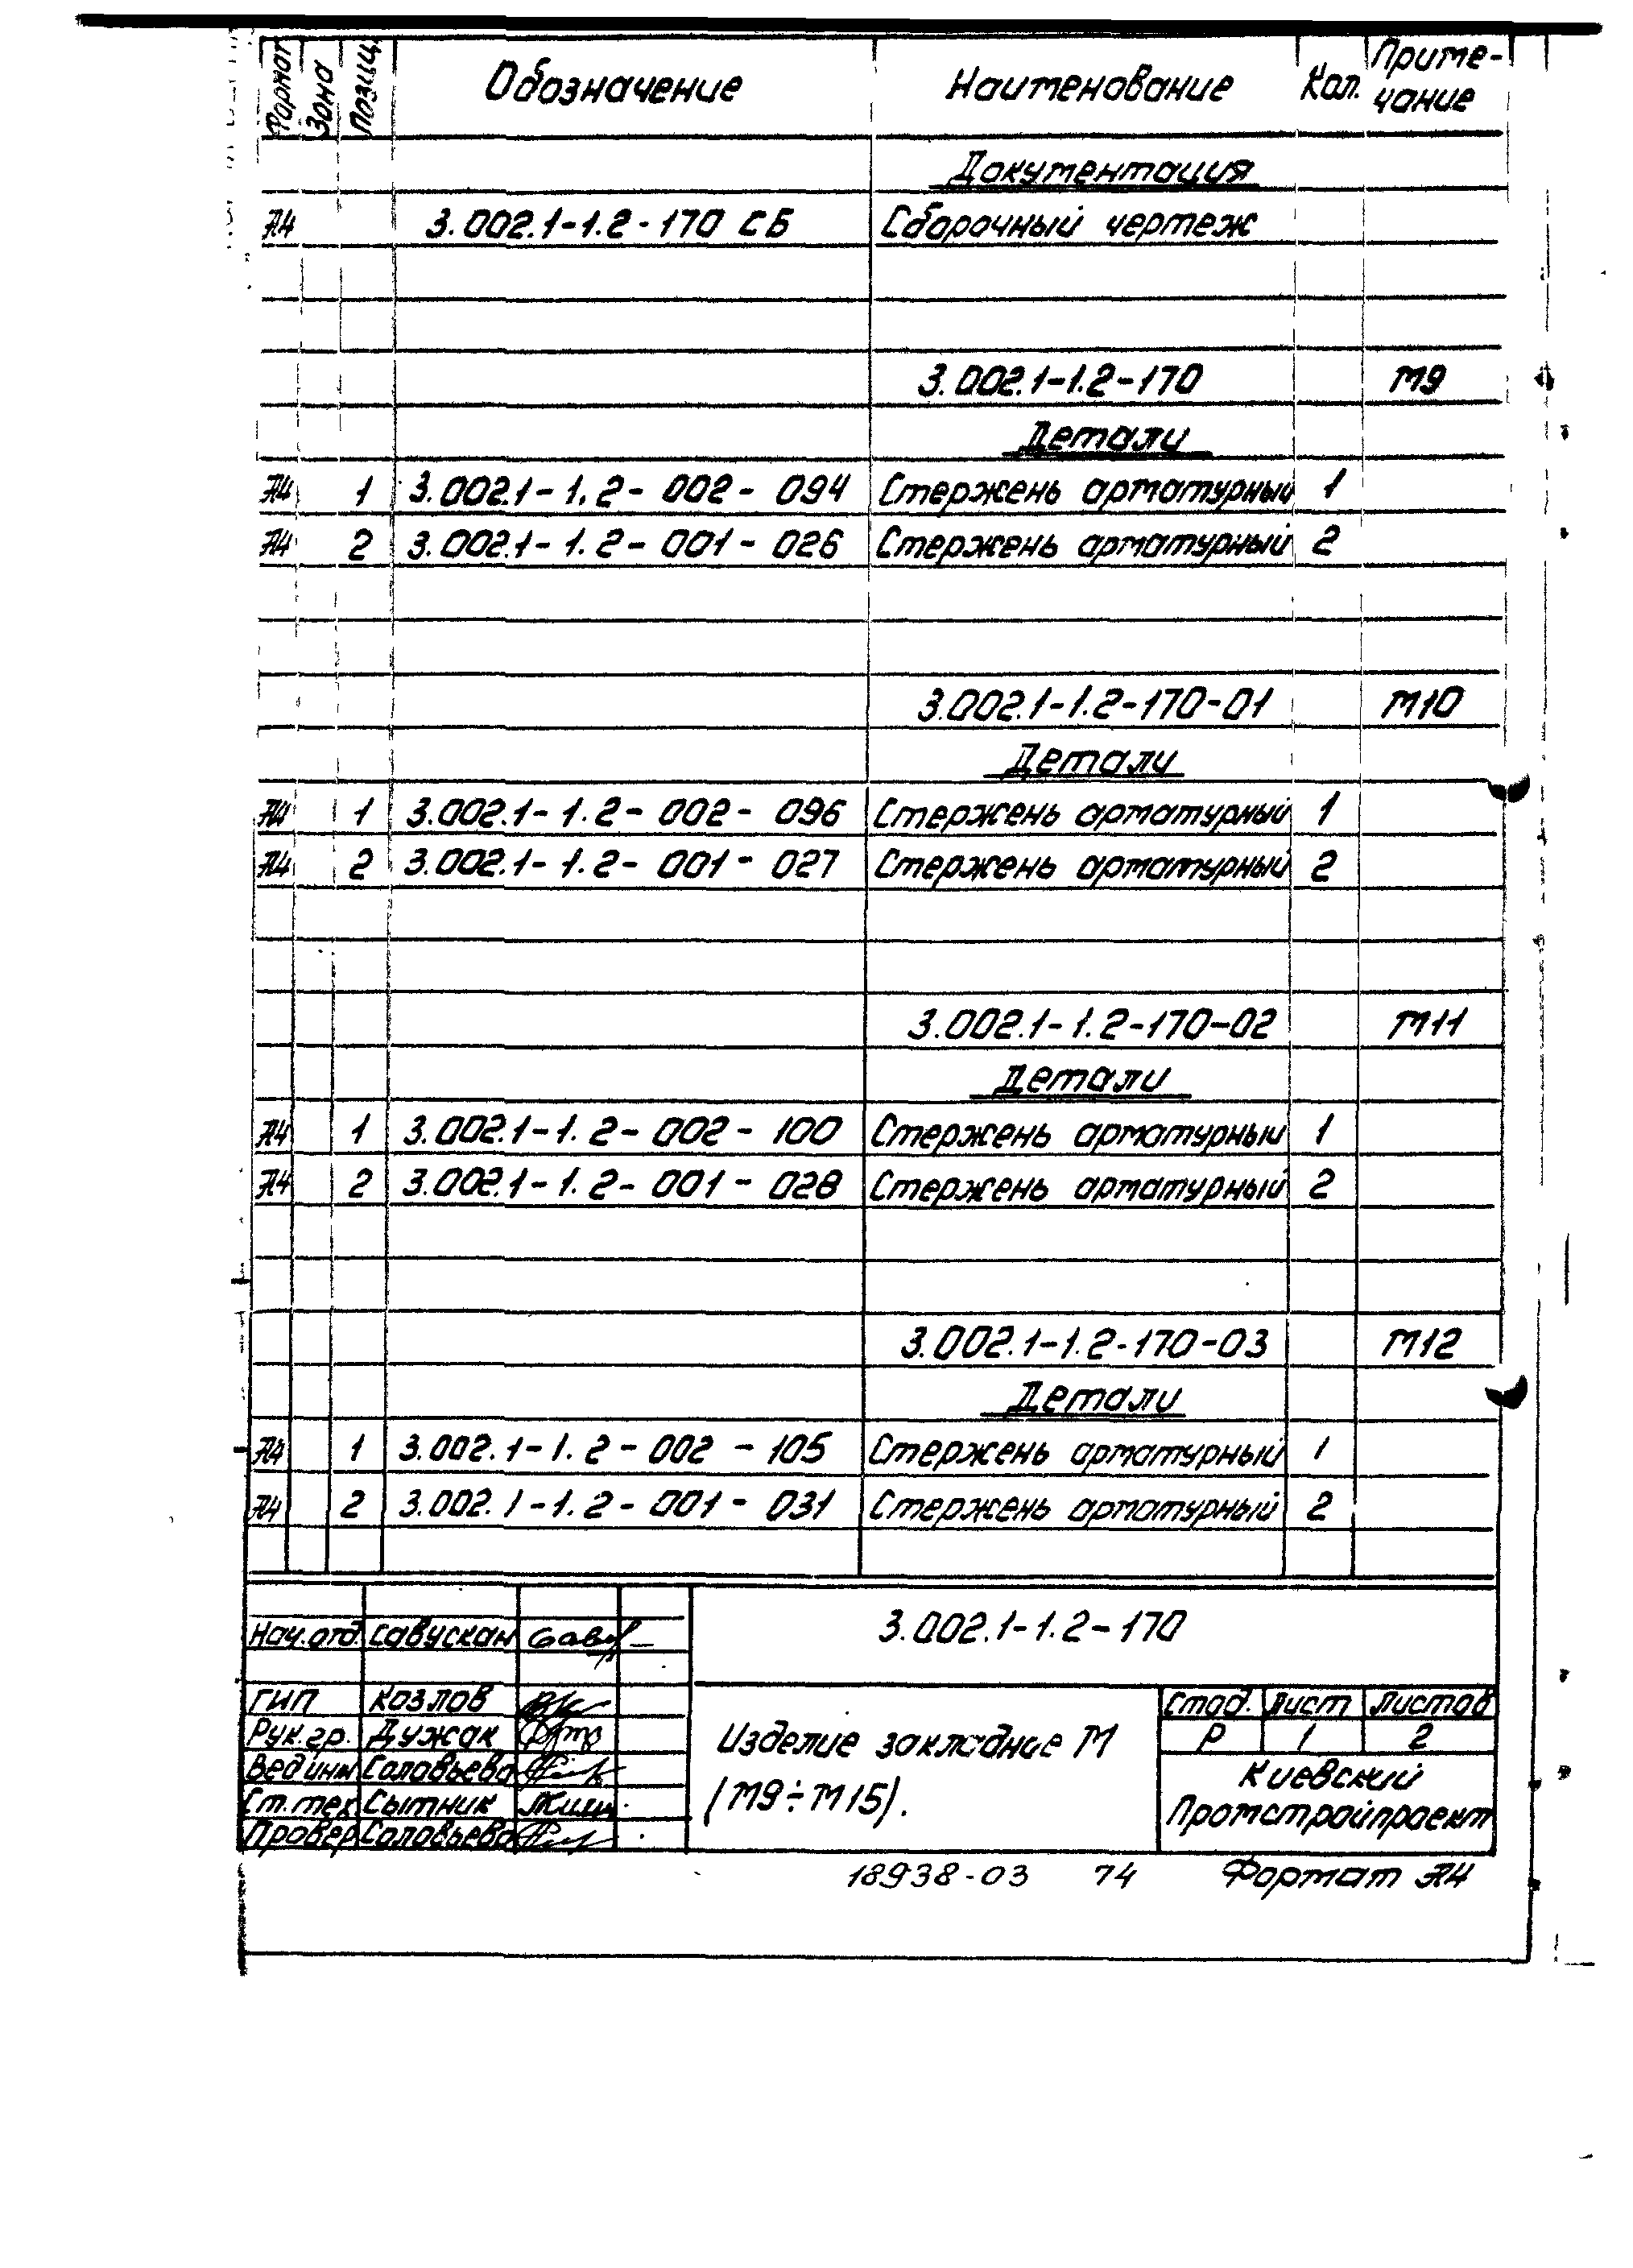 Формат Зона Позиц. Обозначение Наименование Кол. Приме-
чание
Документация
А4 3.002.1-1.2-170 СБ Сборочный чертеж
3.002.1-1.2-170 М9
Детали
А4 1 3.002.1-1.2-002-094 Стержень арматурный 1
А4 2 3.002.1-1.2-001-026 Стержень арматурный 2
3.002.1-1.2-170-01 М10
Детали
А4 1 3.002.1-1.2-002-096 Стержень арматурный 1
А4 2 3.002.1-1.2-001-027 Стержень арматурный 2
3.002.1-1.2-170-02 М11
Детали
А4 1 3.002.1-1.2-002-100 Стержень арматурный 1
А4 2 3.002.1-1.2-001-028 Стержень арматурный 2
3.002.1-1.2-170-03 М12
Детали
А4 1 3.002.1-1.2-002-105 Стержень арматурный 1
А4 2 3.002.1-1.2-001-031 Стержень арматурный 2
3.002.1-1.2-170
Нач.отд. Савускан
ГИП Козлов
Рук.гр. Дужак
Вед инж Соловьева
Ст.тех Сытник
Провер Соловьева
Изделие закладное М
(М9÷М15).
Стад. Лист Листов
Р 1 2
Киевский
Промстройпроект
18938-03 74 Формат А4